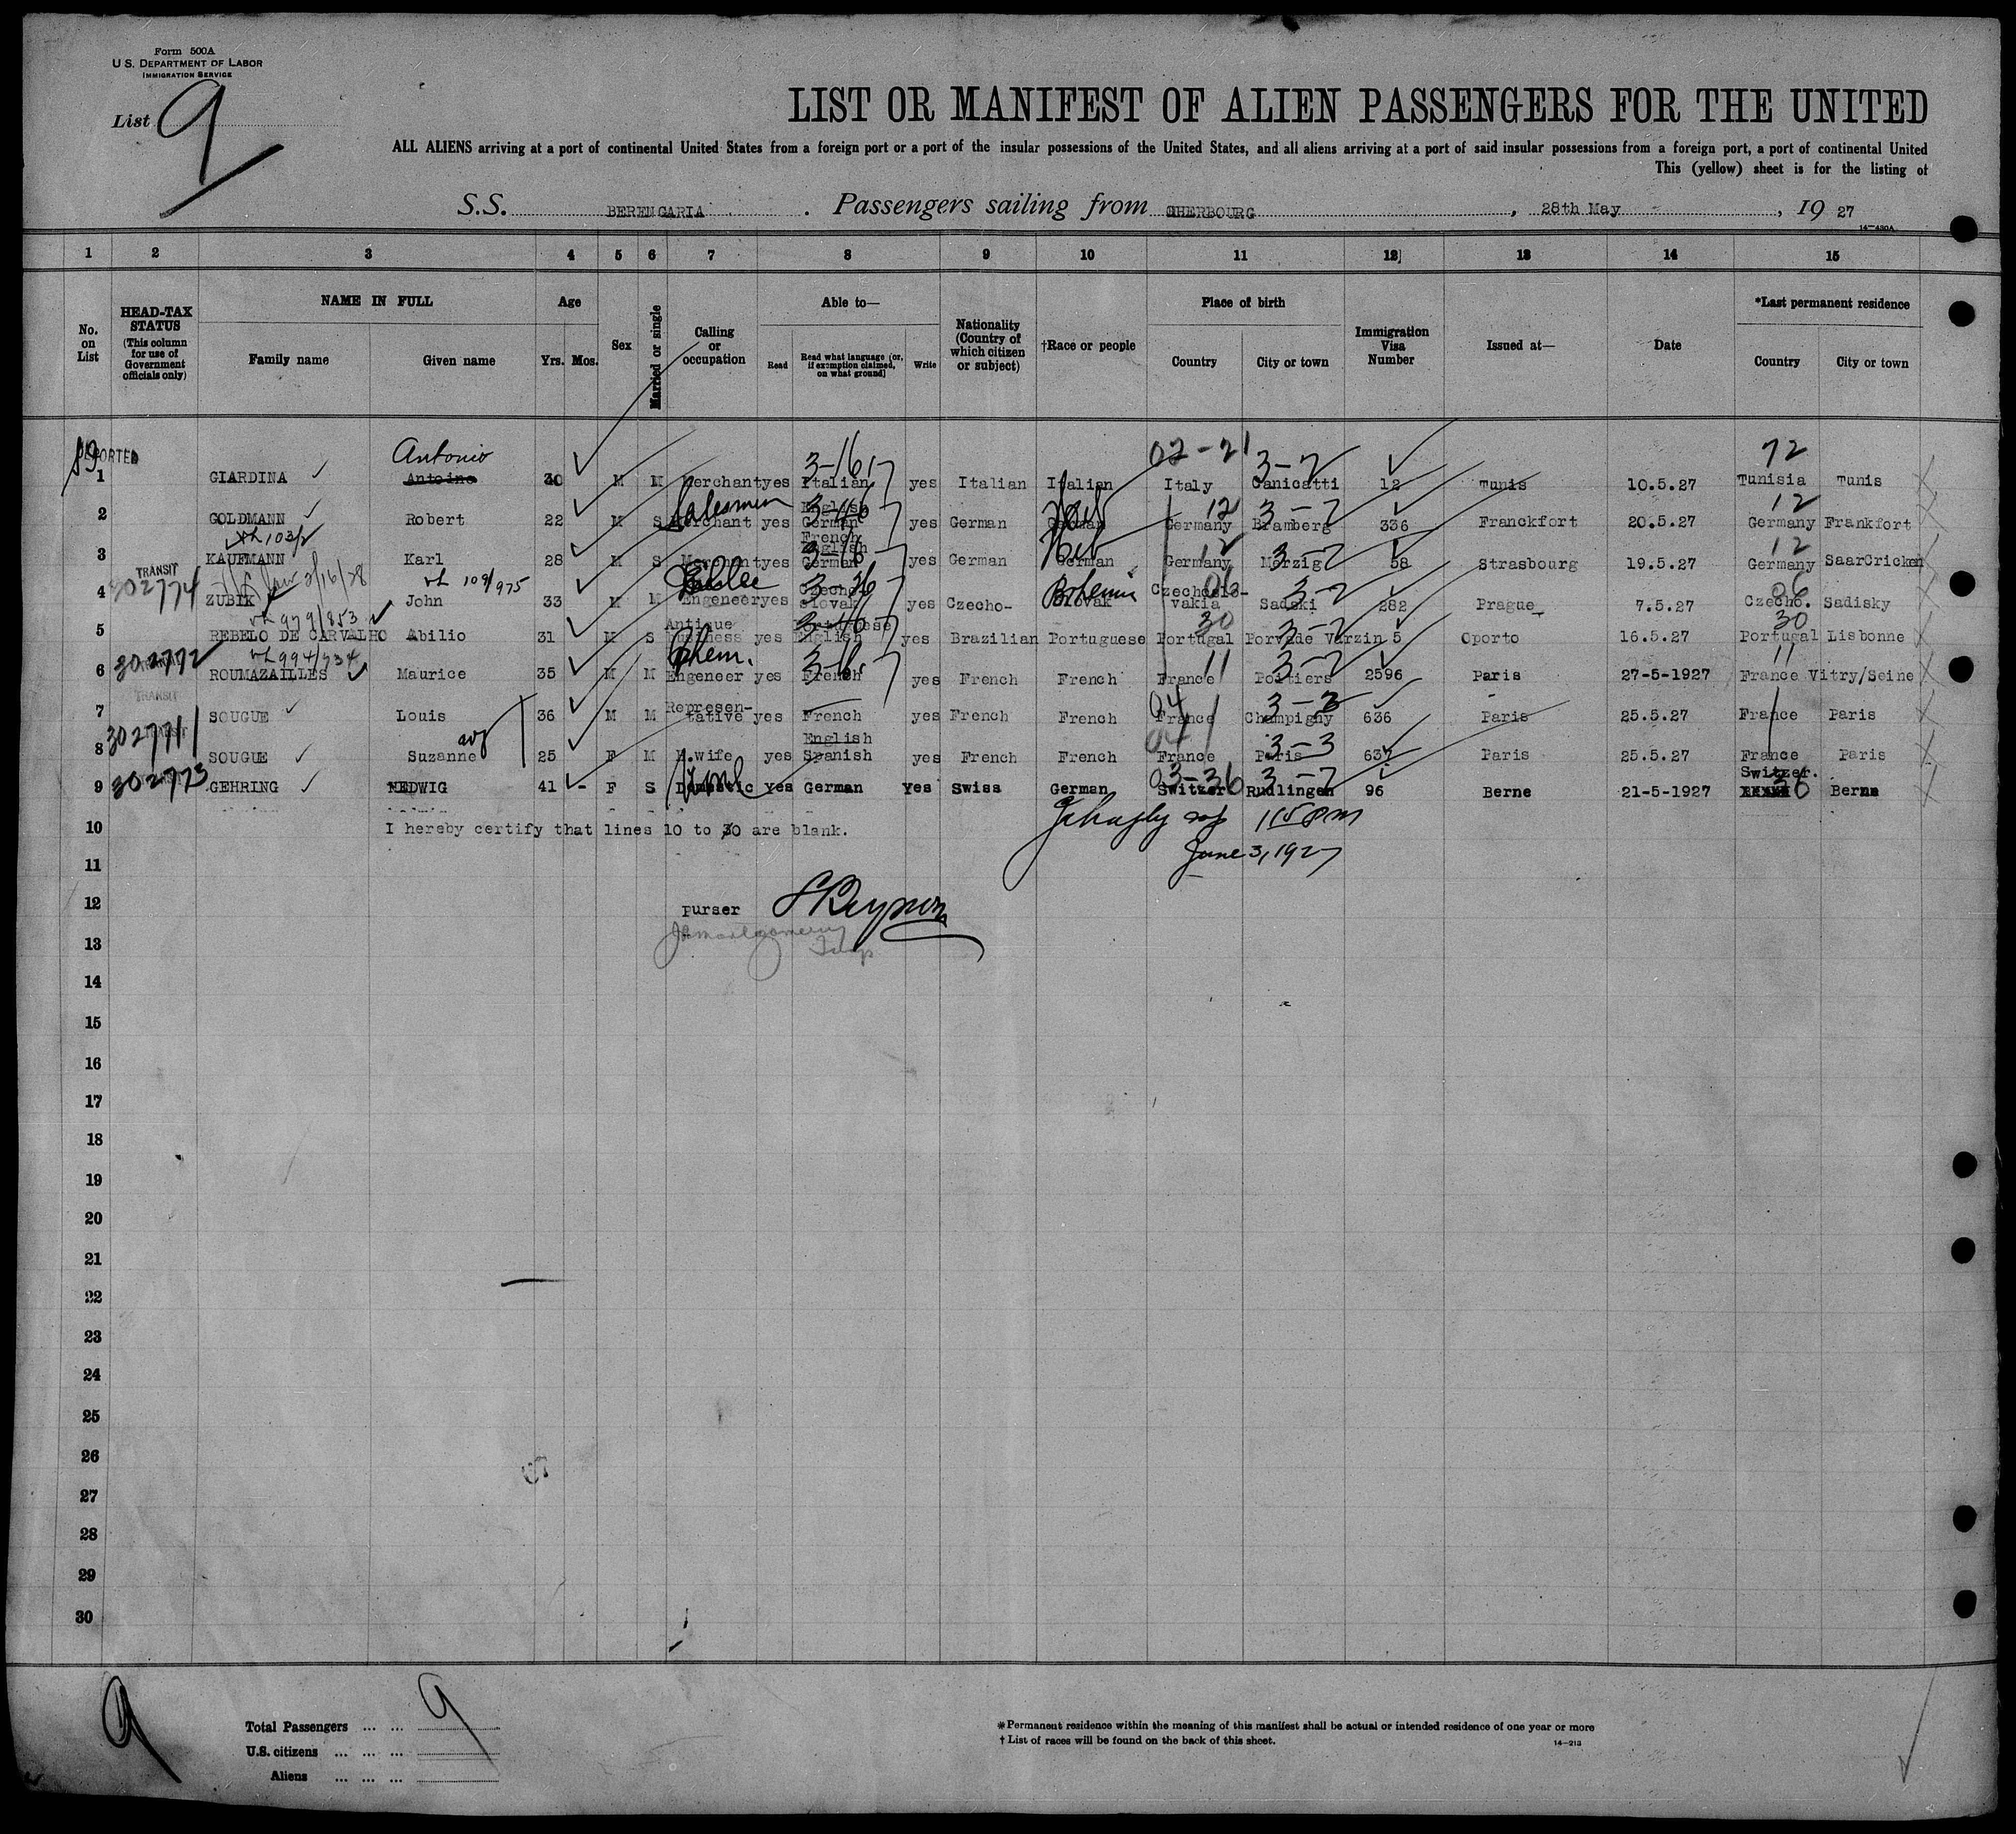 Form 500A
U.S. DEPARTMENT OF LABOR
IMMIGRATION SERVICE
List 9
LIST OR MANIFEST OF ALIEN PASSENGERS FOR THE UNITED
ALL ALIENS arriving at a port of continental United States from a foreign port or a port of the insular possessions of the United States, and all aliens arriving at a port of said insular possessions from a foreign port, a port of continental United
This (yellow) sheet is for the listing of
S.S. BERENGARIA. Passengers sailing from CHERBOURG, 28th May, 19 27
14-430A
1 2 3 4 5 6 7 8 9 10 11 12 13 14 15
No. on List
HEAD-TAX STATUS (This column for use of Government officials only)
NAME IN FULL Family name Given name
Age Yrs. Mos.
Sex
Married or single
Calling or occupation
Able to— Read Read what language [or, if exemption claimed, on what ground] Write
Nationality (Country of which citizen or subject)
†Race or people
Place of birth Country City or town
Immigration Visa Number
Issued at—
Date
*Last permanent residence Country City or town
Antonio 3-16 02-21 3-7 72
DEPORTED
1 GIARDINA Antoine 30 M M Merchant yes Italian yes Italian Italian Italy Canicatti 12 Tunis 10.5.27 Tunisia Tunis
Salesman English Heb 12 3-7 12
2 GOLDMANN Robert 22 M S Merchant yes German yes German German Germany Bramberg 336 Franckfort 20.5.27 Germany Frankfort
French English 3-16 Heb 12 3-7 12
3 KAUFMANN Karl 28 M S Merchant yes German yes German German Germany Merzig 58 Strasbourg 19.5.27 Germany SaarCricken
TRANSIT 302774 Czecho Bohemia Czechoslo- 06 3-7 06
4 ZUBIK John 33 M M Engeneer yes slovak yes Czecho- Slovak vakia Sadski 282 Prague 7.5.27 Czecho. Sadisky
979/853 Antique Portuguese 30 3-7 30
5 REBELO DE CARVALHO Abilio 31 M S business yes English yes Brazilian Portuguese Portugal Porvade Varzin 5 Oporto 16.5.27 Portugal Lisbonne
302772 994/934 Chem. 11 3-7 11
6 ROUMAZAILLES Maurice 35 M M Engeneer yes French yes French French France Poitiers 2596 Paris 27-5-1927 France Vitry/Seine
TRANSIT Represen- 04 3-3
7 SOUGUE Louis 36 M M tative yes French yes French French France Champigny 636 Paris 25.5.27 France Paris
302771 English 04 3-3
8 SOUGUE Suzanne 25 F M H.wife yes Spanish yes French French France Paris 637 Paris 25.5.27 France Paris
302773 03-36 3-7 Switzer. 36
9 GEHRING HEDWIG 41 - F S Domestic Yes German Yes Swiss German Switzer Rudlingen 96 Berne 21-5-1927 Berne
10 I hereby certify that lines 10 to 30 are blank.
115 PM
June 3, 1927
11
12 purser
13 Montgomery
14
15
16
17
18
19
20
21
22
23
24
25
26
27
28
29
30
9
Total Passengers ... ... 9
U.S. citizens ... ... ...
Aliens ... ... ...
*Permanent residence within the meaning of this manifest shall be actual or intended residence of one year or more
† List of races will be found on the back of this sheet.
14-213